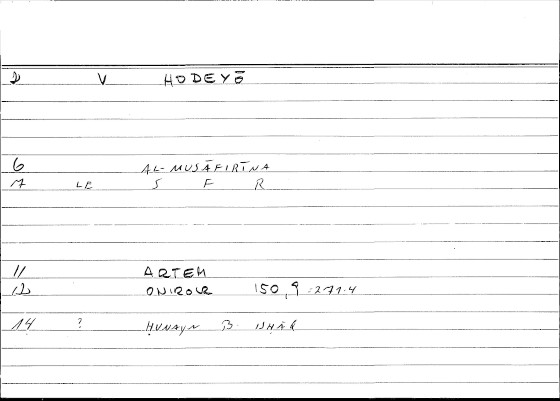 2 V HODEYŌ
6 AL-MUSĀFIRĪNA
7 LE S F R
11 ARTEM
12 ONIROCR 150,9 = 271.4
14 ? ḤUNAYN B. ISḤĀḲ